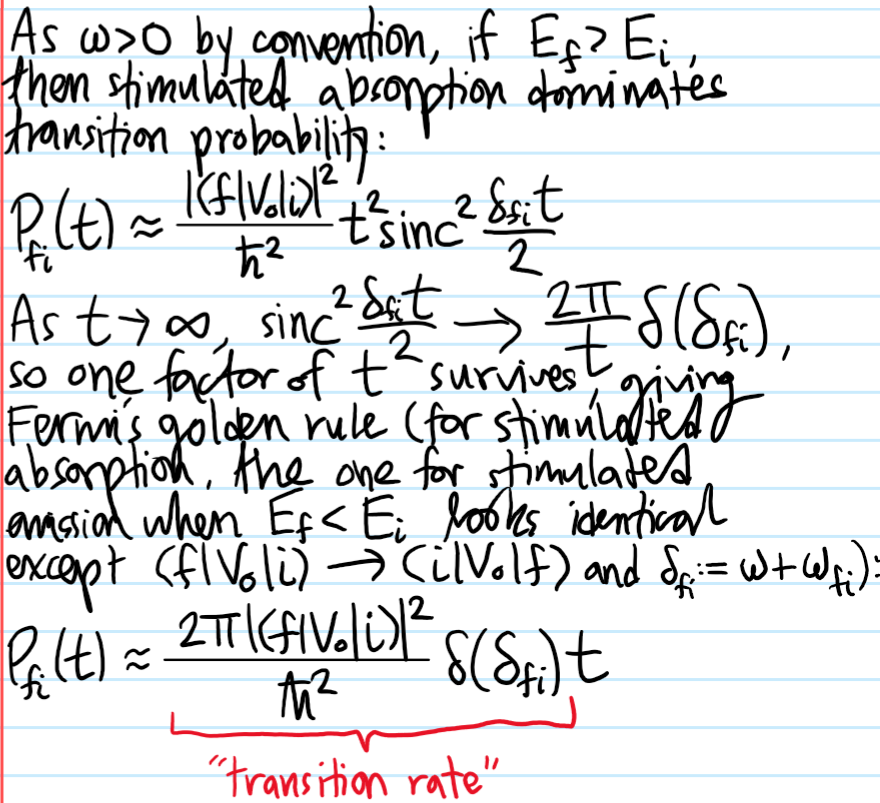 As ω>0 by convention, if E_f > E_i,
then stimulated absorption dominates
transition probability:
P_fi(t) ≈ |⟨f|V₀|i⟩|²/ħ² t² sinc² δ_fi t/2
As t → ∞, sinc² δ_fi t/2 → 2π/t δ(δ_fi),
so one factor of t survives, giving
Fermi's golden rule (for stimulated
absorption, the one for stimulated
emission when E_f < E_i looks identical
except ⟨f|V₀|i⟩ → ⟨i|V₀|f⟩ and δ_fi := ω+ω_fi):
P_fi(t) ≈ 2π|⟨f|V₀|i⟩|²/ħ² δ(δ_fi)t
"transition rate"